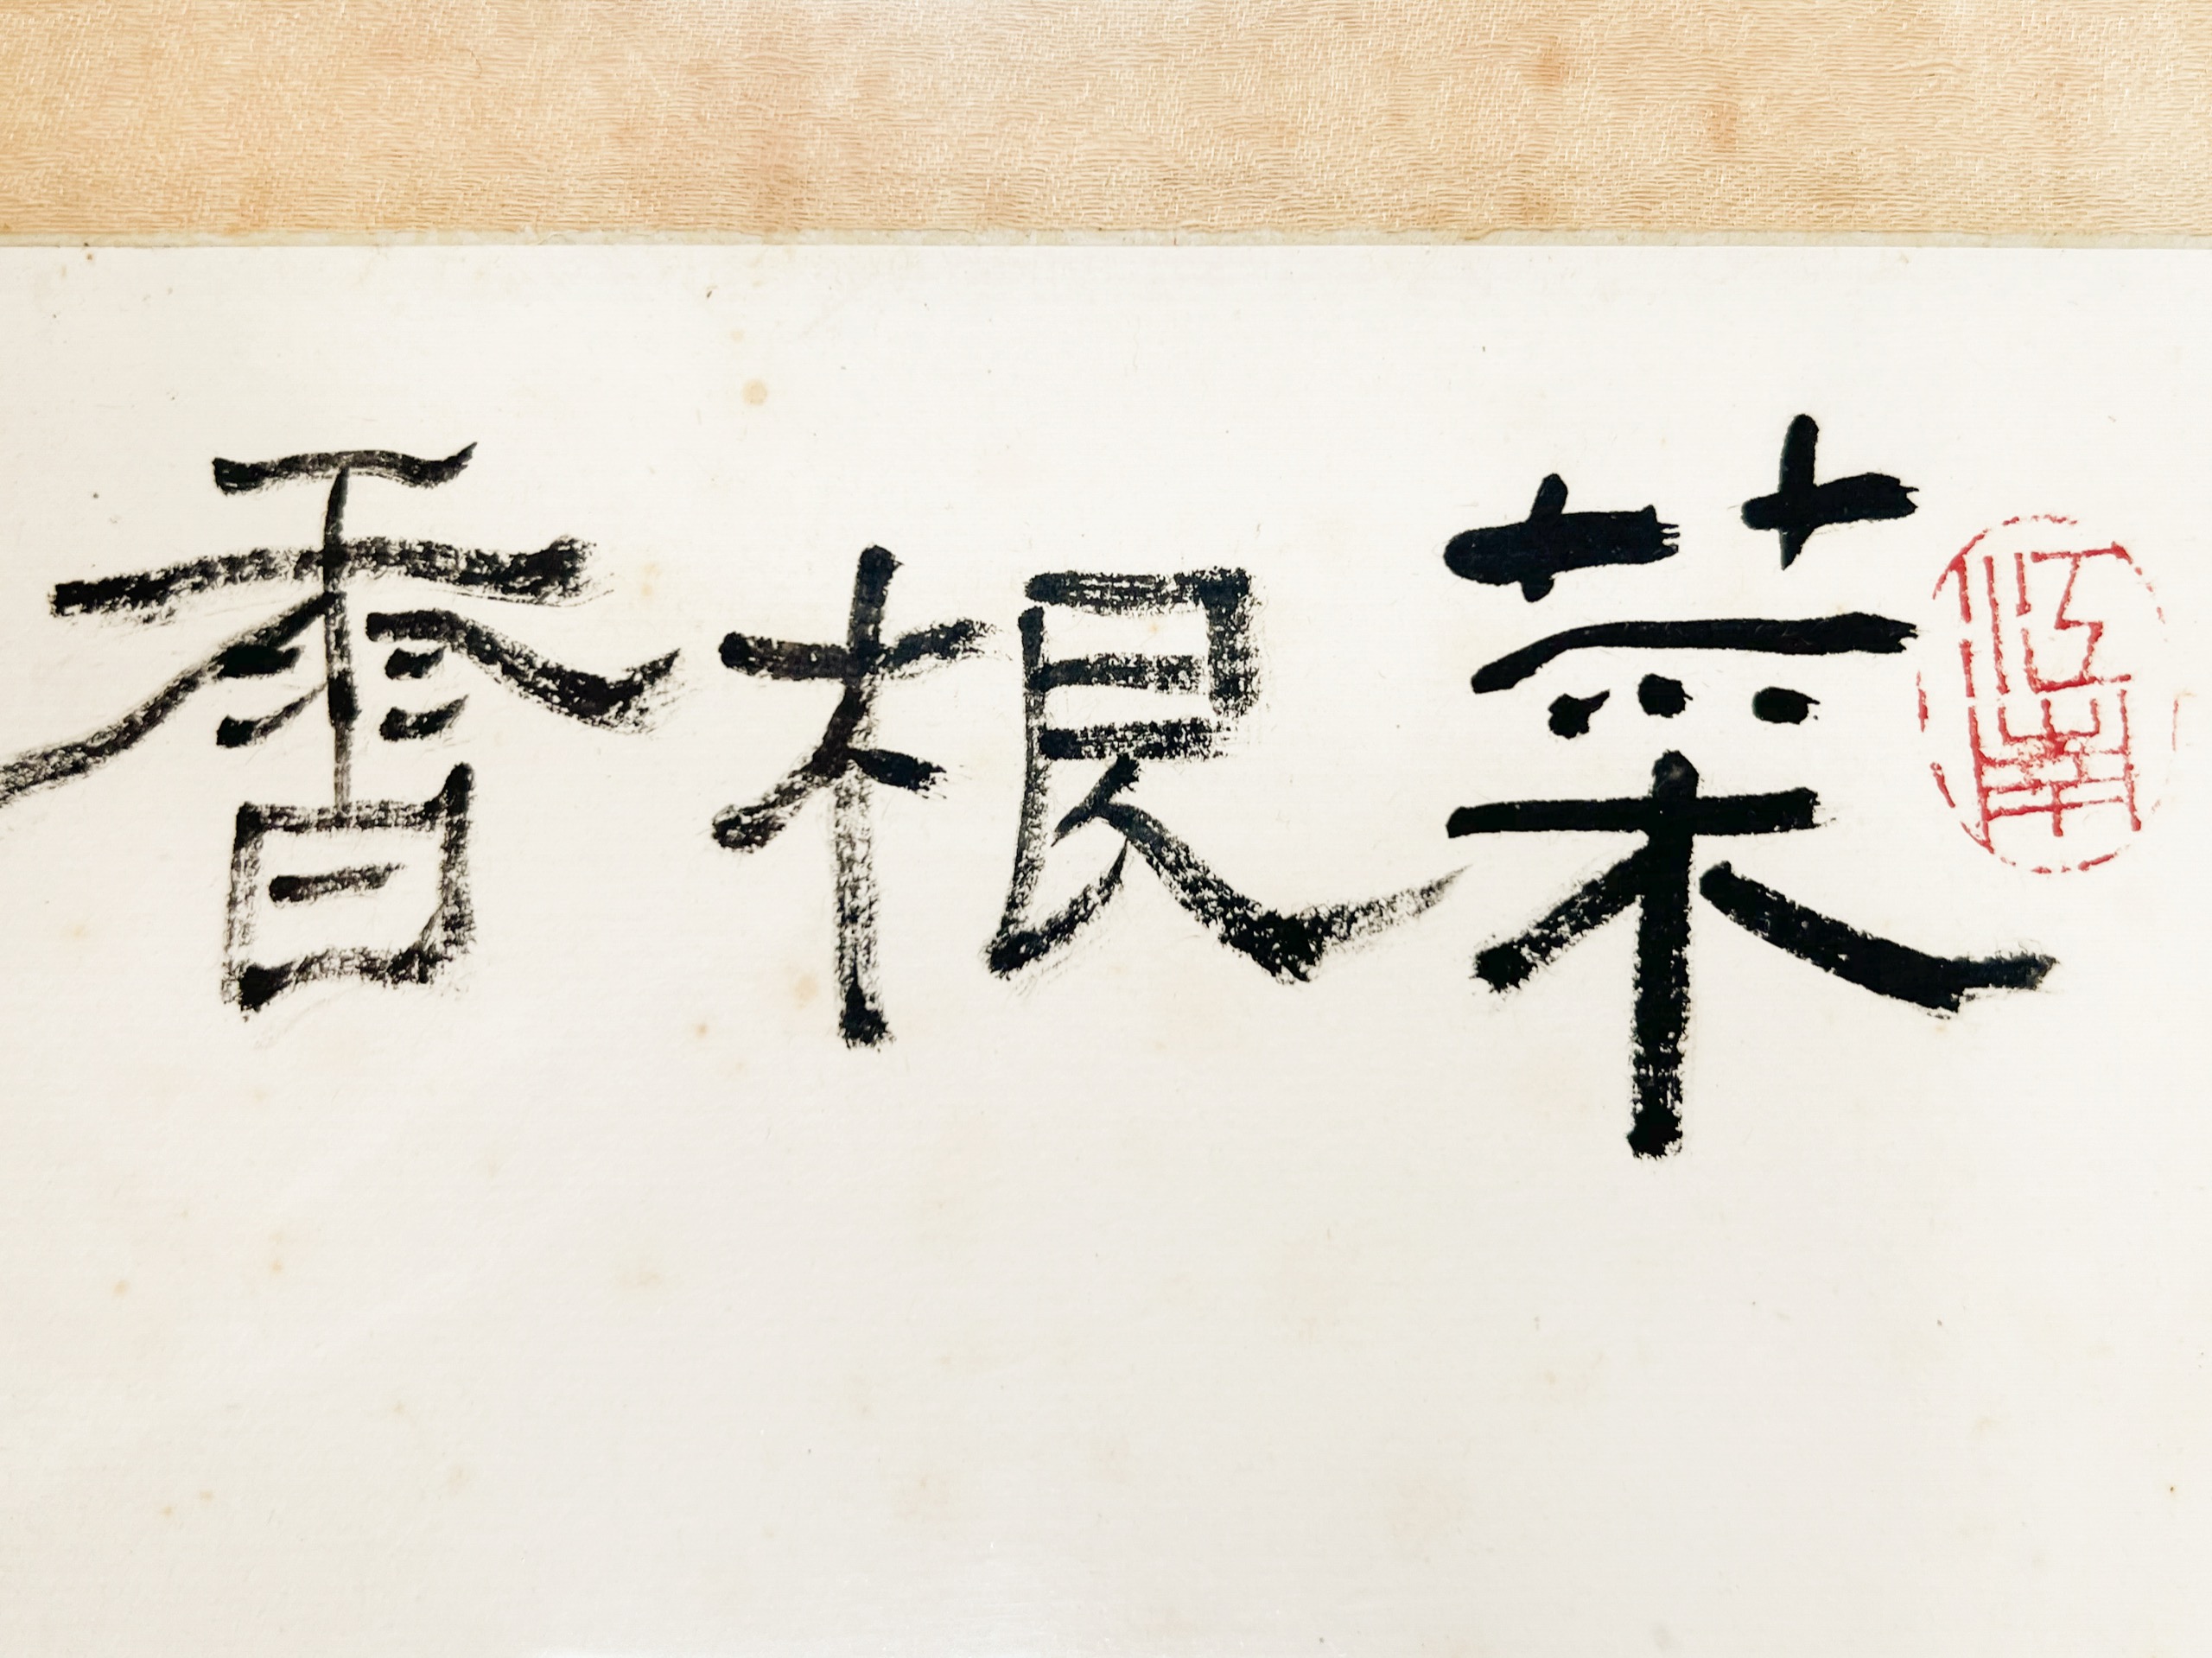 菜根香